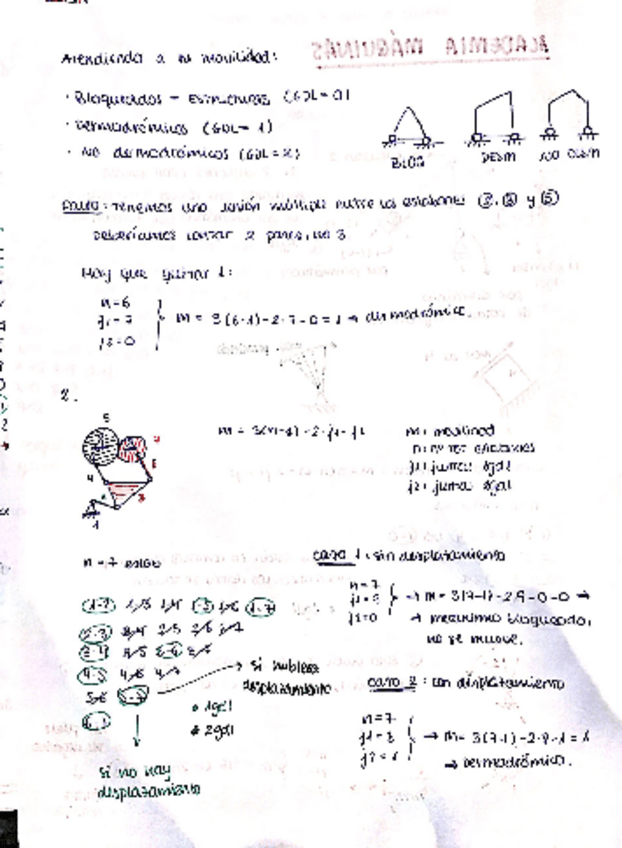 ACADEMIA MÁQUINAS
Atendiendo a su movilidad:
· Bloqueados - Estructuras (GDL=0)
· Desmodrómicos (GDL=1)
· No desmodrómicos (GDL=2)
BLOQ DESM NO DESM
: Tenemos una unión múltiple entre los eslabones y
Deberíamos contar 2 pares, no 3
Hay que quitar 1:
n=6
j1=7
j2=0
m = 3(6-1)-2·7-0=1 → desmodrómico
2.
5
4
1
3
m = 3(n-1)-2·j1-j2
m: movilidad
n: nº eslabones
j1: juntas 1gdl
j2: juntas 2gdl
n=7 eslab
Caso 1: sin desplazamiento
n=7
j1=9
j2=0
→ m= 3(7-1)-2·9-0=0 →
→ mecanismo bloqueado,
no se mueve.
1-2 1-3 1-4 1-5 1-6 1-7
2-3 2-4 2-5 2-6 2-7
3-4 3-5 3-6 3-7
4-5 4-6 4-7
5-6 5-7
6-7
→ si hubiese
desplazamiento
1gdl
2gdl
si no hay
desplazamiento
Caso 2: con desplazamiento
n=7
j1=8
j2=1
→ m= 3(7-1)-2·8-1=1
→ Desmodrómico.